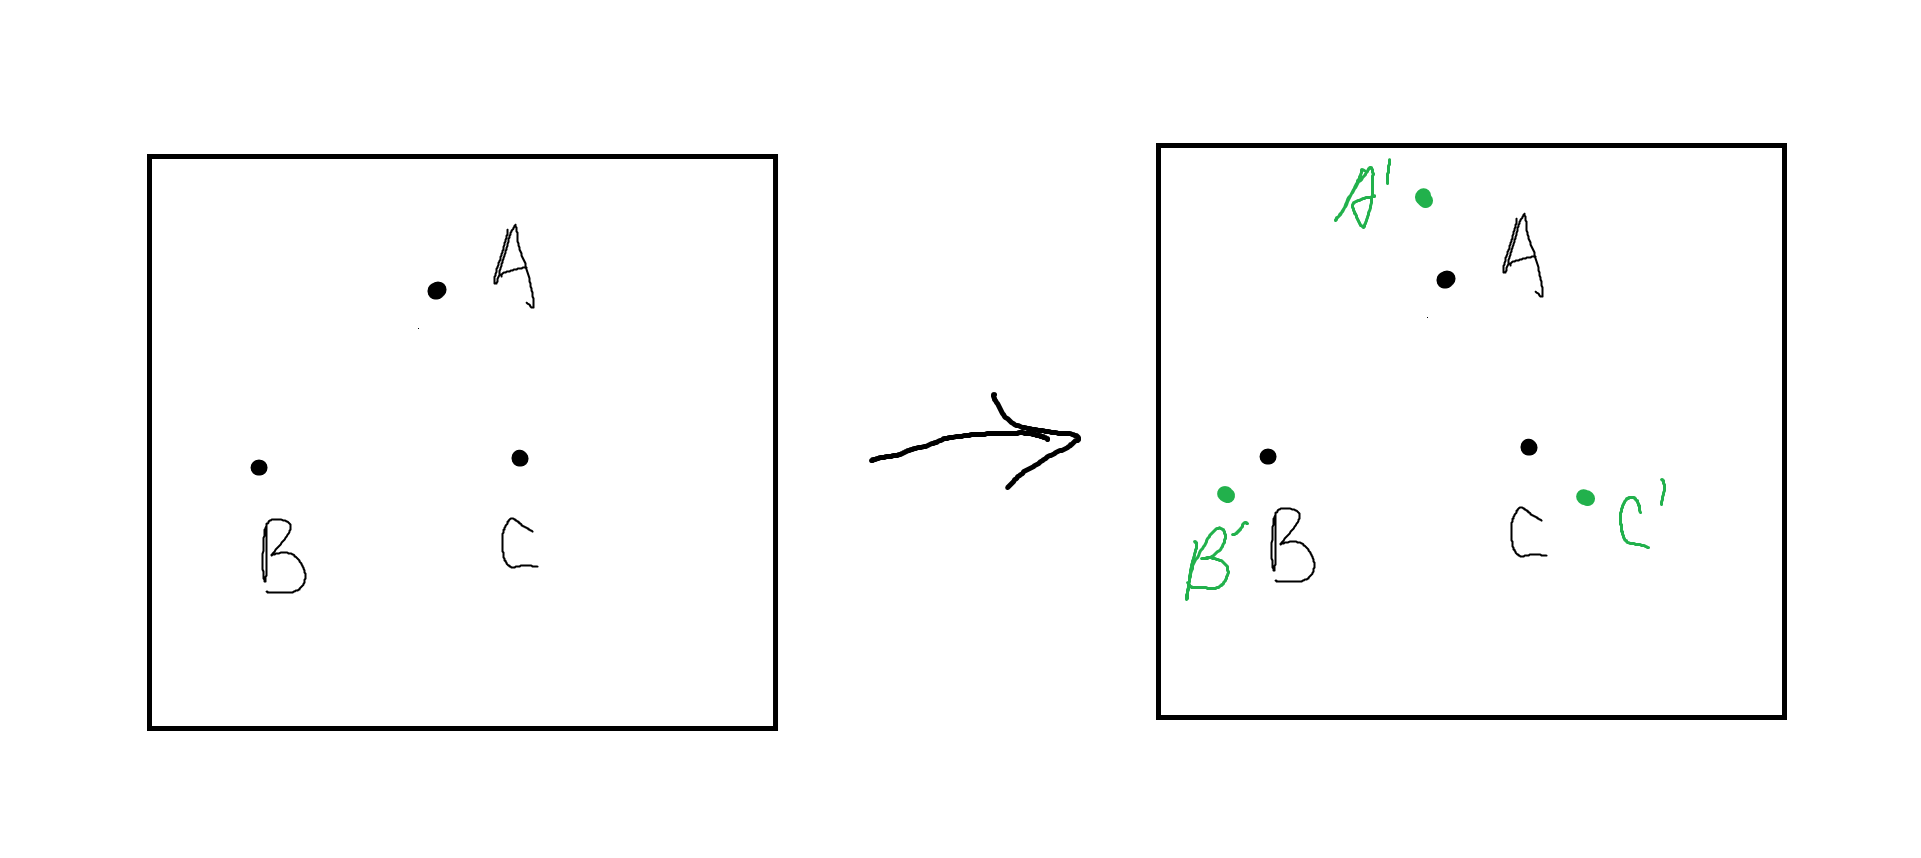 A
B
C
A'
A
B'
B
C
C'